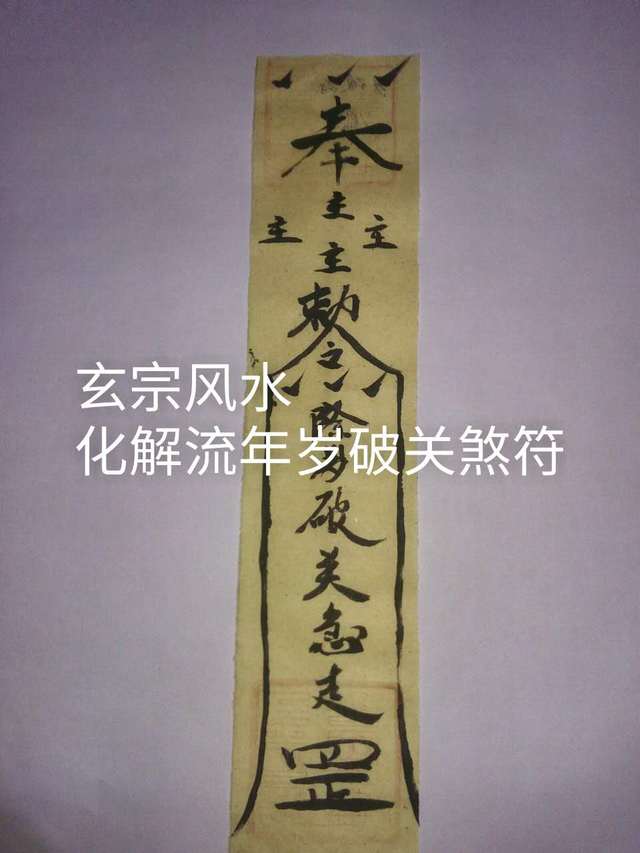 奉
主
主 主
主
敕令
除
破
关
急
走
罡
玄宗风水
化解流年岁破关煞符